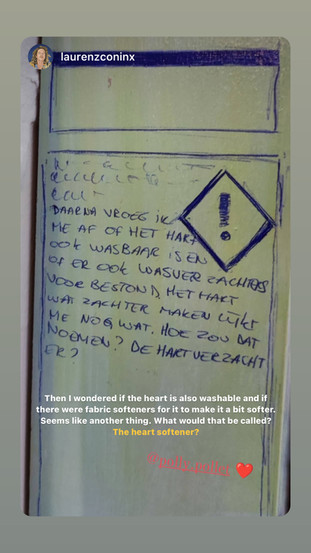 laurenzconinx
DAARNA VROEG IK
ME AF OF HET HART
OOK WASBAAR IS EN
OF ER OOK WASVERZACHTERS
VOOR BESTOND. HET HART
WAT ZACHTER MAKEN LIJKT
ME NOG WAT. HOE ZOU DAT
NOEMEN? DE HARTVERZACHT
ER?
Then I wondered if the heart is also washable and if
there were fabric softeners for it to make it a bit softer.
Seems like another thing. What would that be called?
The heart softener?